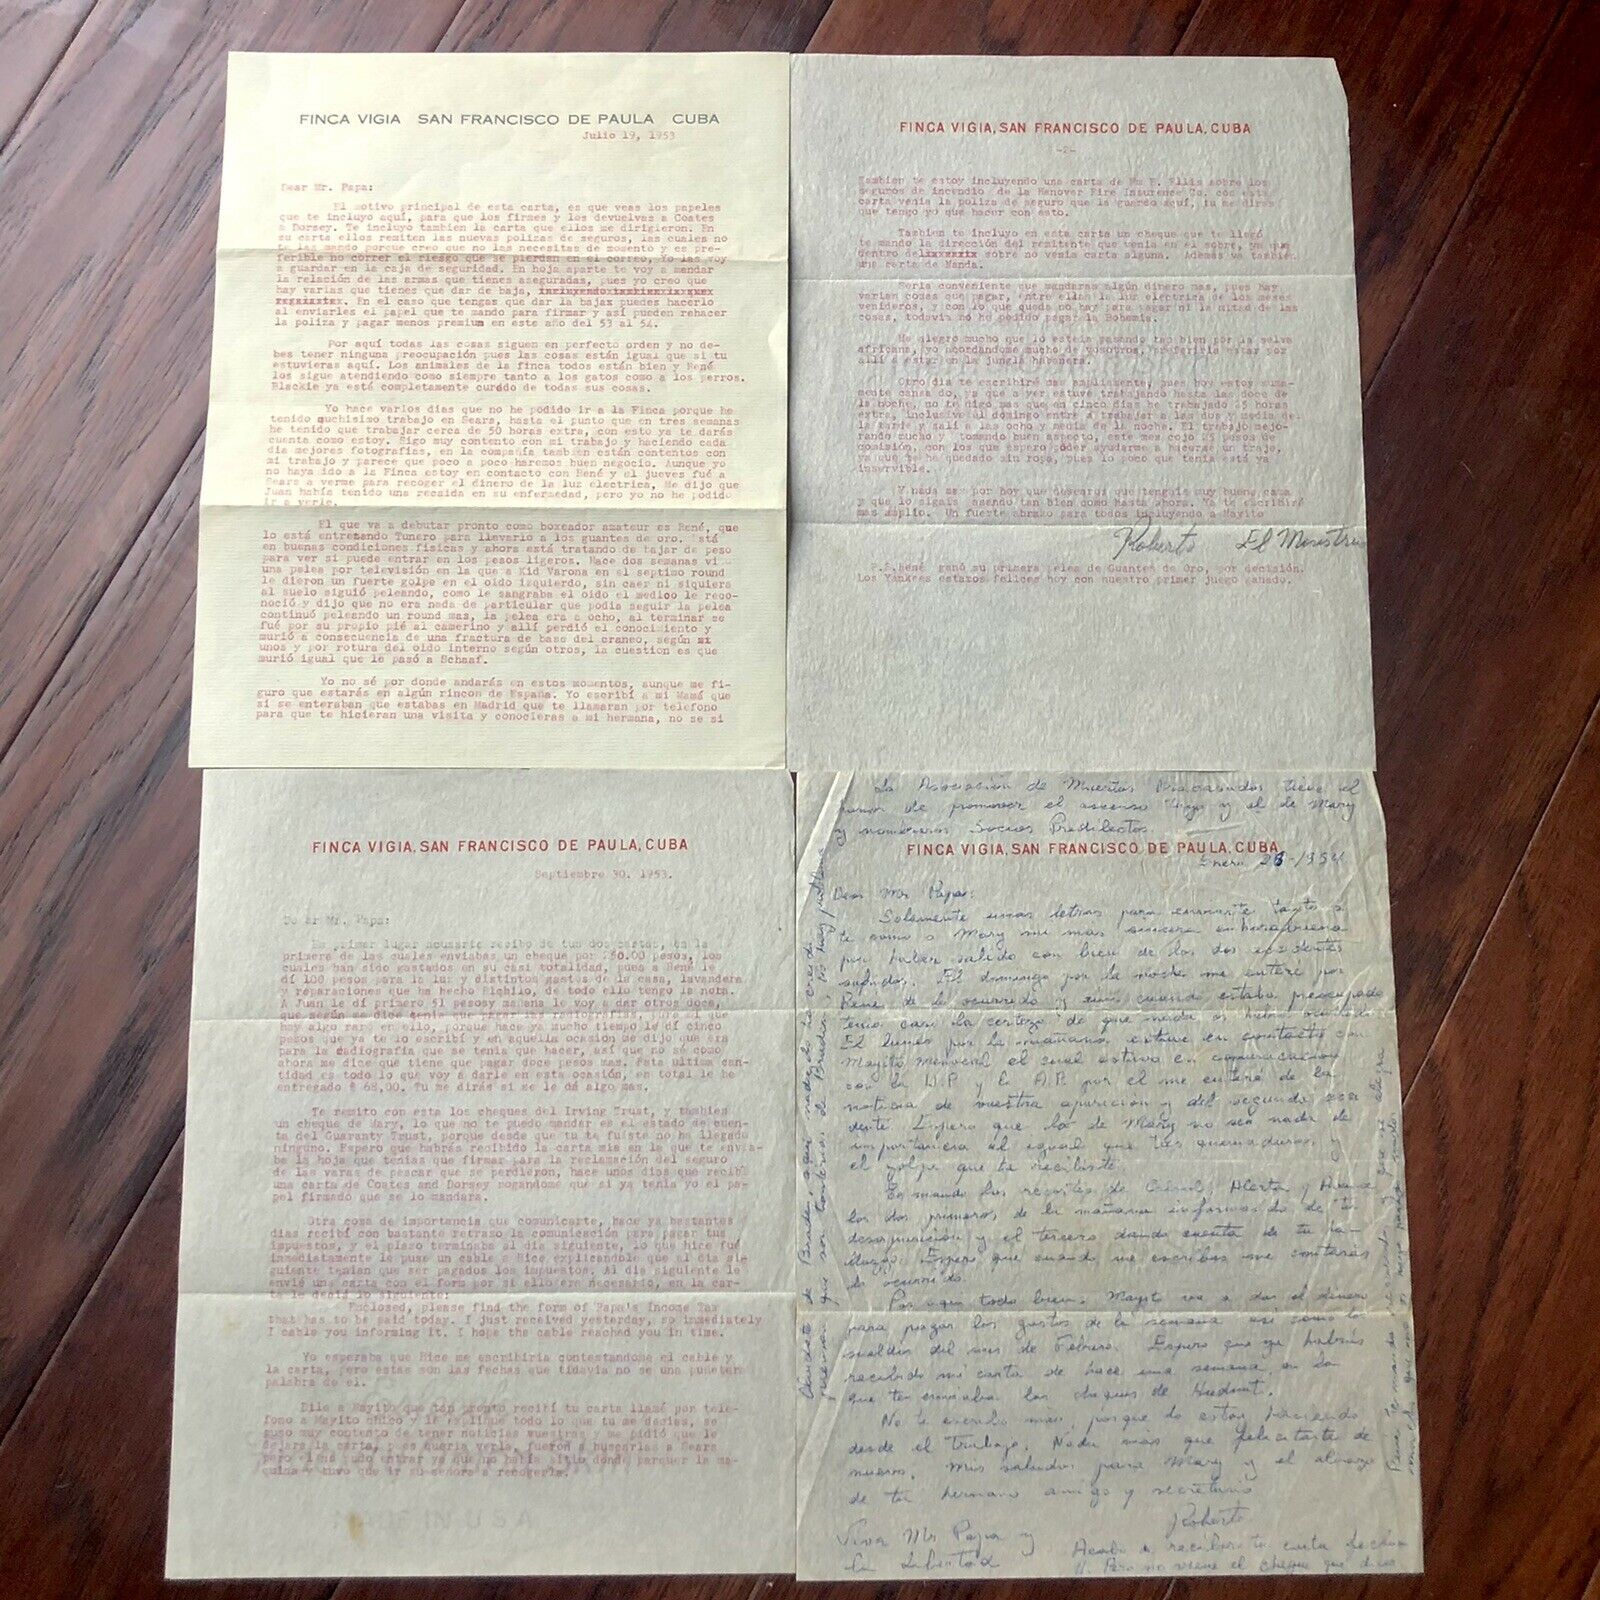 FINCA VIGIA SAN FRANCISCO DE PAULA CUBA
Julio 19, 1953
Dear Mr. Papa:
El motivo principal de esta carta, es que veas los papeles
que te incluyo aquí, para que los firmes y los devuelvas a Coates
a Dorsey. Te incluyo tambien la carta que ellos me dirigieron. En
su carta ellos remiten las nuevas polizas de seguros, las cuales no
te las mando porque creo que no las necesitas de momento y es pre-
ferible no correr el riesgo que se pierdan en el correo, Yo las voy
a guardar en la caja de seguridad. En hoja aparte te voy a mandar
la relación de las armas que tienes aseguradas, pues yo creo que
hay varias que tienes que dar de baja,
En el caso que tengas que dar la bajax puedes hacerlo
al enviarles el papel que te mando para firmar y así pueden rehacer
la poliza y pagar menos premium en este año del 53 al 54.
Por aquí todas las cosas siguen en perfecto orden y no de-
bes tener ninguna preocupación pues las cosas están igual que si tu
estuvieras aquí. Los animales de la finca todos están bien y René
los sigue atendiendo como siempre tanto a los gatos como a los perros.
Blackie ya está completamente curado de todas sus cosas.
Yo hace varios días que no he podido ir a la Finca porque he
tenido muchisimo trabajo en Sears, hasta el punto que en tres semanas
he tenido que trabajar cerca de 50 horas extra, con esto ya te darás
cuenta como estoy. Sigo muy contento con mi trabajo y haciendo cada
dia mejores fotografías, en la compañía tambien están contentos con
mi trabajo y parece que poco a poco haremos buen negocio. Aunque yo
no haya ido a la Finca estoy en contacto con René y el jueves fué a
Sears a verme para recoger el dinero de la luz electrica. Me dijo que
Juan había tenido una recaida en su enfermedad, pero yo no he podido
ir a verle.
El que va a debutar pronto como boxeador amateur es René, que
lo está entrenando Tunero para llevarlo a los guantes de oro. Está
en buenas condiciones fisicas y ahora está tratando de bajar de peso
para ver si puede entrar en los pesos ligeros. Hace dos semanas vi
una pelea por televisión en la que a Kid Varona en el septimo round
le dieron un fuerte golpe en el oido izquierdo, sin caer ni siquiera
al suelo siguió peleando, como le sangraba el oido el medico le reco-
noció y dijo que no era nada de particular que podía seguir la pelea
continuó peleando un round mas, la pelea era a ocho, al terminar se
fué por su propio pié al camerino y allí perdió el conocimiento y
murió a consecuencia de una fractura de base del craneo, según
unos y por rotura del oido interno según otros, la cuestion es que
murió igual que le pasó a Schaaf.
Yo no sé por donde andarás en estos momentos, aunque me fi-
guro que estarás en algún rincon de España. Yo escribí a mi Mamá que
si se enteraban que estabas en Madrid que te llamaran por telefono
para que te hicieran una visita y conocieras a mi hermana, no se si
FINCA VIGIA, SAN FRANCISCO DE PAULA, CUBA
-2-
Tambien te estoy incluyendo una carta de Mm E. Ellis sobre los
seguros de incendio de la Hanover Fire Insurance Co. con esta
carta venia la poliza de seguro que la guardo aquí, tu me diras
que tengo yo que hacer con esto.
Tambien te incluyo en esta carta un cheque que te llegó
te mando la dirección del remitente que venia en el sobre, ya que
dentro del sobre no venia carta alguna. Además va tambien
una carta de Nanda.
Seria conveniente que mandaras algún dinero mas, pues hay
varias cosas que pagar, entre ellas la luz electrica de los meses
venideros, y con lo que queda no hay para pagar ni la mitad de las
cosas, todavia no he podido pagar la Bohemia.
Me alegro mucho que lo esteis pasando tan bien por la selva
africana, yo acordándome mucho de vosotros, preferiria estar por
allí a estar en la jungla habanera.
Otro dia te escribiré mas ampliamente, pues hoy estoy suma-
mente cansado, ya que a ver estuve trabajando hasta las doce de
la noche, no te digo mas que en cinco dias he trabajado 25 horas
extra, inclusive al domingo entre a trabajar a las dos y media de
la tarde y salí a las ocho y media de la noche. El trabajo mejo-
rando mucho y tomando buen aspecto, este mes cojo 25 pesos de
comisión, con los que espero poder ayudarme a hacerme un traje,
ya que me he quedado sin ropa, pues lo poco que tenia está ya
inservible.
Y nada mas por hoy que desearos que tengais muy buena caza
y que lo sigais pasando tan bien como hasta ahora. Ya te escribiré
mas amplio. Un fuerte abrazo para todos incluyendo a Mayito
Roberto El Ministro
P.S. René ganó su primera pelea de Guantes de Oro, por decisión.
Los Yankees estamos felices hoy con nuestro primer juego ganado.
FINCA VIGIA, SAN FRANCISCO DE PAULA, CUBA
Septiembre 30, 1953.
Dear Mr. Papa:
En primer lugar acusarte recibo de tus dos cartas, en la
primera de las cuales enviabas un cheque por pesos, los
cuales han sido gastados en su casi totalidad, pues a René le
dí 100 pesos para la luz y distintos gastos de la casa, lavandera
y reparaciones que ha hecho Cachilo, de todo ello tengo la nota.
A Juan le dí primero 51 pesos y mañana le voy a dar otros doce,
que según me dice tenia que pagar las radiografías, para mi que
hay algo raro en ello, porque hace ya mucho tiempo le dí cinco
pesos que ya te lo escribí y en aquella ocasion me dijo que era
para la radiografía que se tenia que hacer, así que no sé como
ahora me dice que tiene que pagar doce pesos mas. Esta ultima can-
tidad es todo lo que voy a darle en esta ocasión, en total le he
entregado $ 68,00. Tu me dirás si se le dá algo mas.
Te remito con esta los cheques del Irving Trust, y tambien
un cheque de Mary, lo que no te puedo mandar es el estado de cuen-
ta del Guaranty Trust, porque desde que tu te fuiste no ha llegado
ninguno. Espero que habrás recibido la carta mia en la que te envia-
ba la hoja que tenias que firmar para la reclamación del seguro
de las varas de pescar que se perdieron, hace unos dias que recibí
una carta de Coates and Dorsey rogandome que si ya tenia yo el pa-
pel firmado que se lo mandara.
Otra cosa de importancia que comunicarte, hace ya bastantes
dias recibí con bastante retraso la comunicación para pagar tus
impuestos, y el plazo terminaba al día siguiente, lo que hice fué
inmediatamente le puse un cable a Rice explicandole que al dia si-
guiente tenian que ser pagados los impuestos. Al dia siguiente le
envié una carta con el form por si ello era necesario, en la car-
ta le decia lo siguiente:
Enclosed, please find the form of Papa's Income Tax
that has to be paid today. I just received yesterday, so immediately
I cable you informing it. I hope the cable reached you in time.
Yo esperaba que Rice me escribiria contestandome el cable y
la carta, pero estas son las fechas que tidavia no se una puñetera
palabra de el.
Dile a Mayito que tan pronto recibí tu carta llamé por tele-
fono a Mayito chico y le expliqué todo lo que tu me decias, se
puso muy contento de tener noticias vuestras y me pidió que le
dejara la carta, pues queria verla, fueron a buscarla a Sears
pero no pudo entrar ya que no habia sitio donde parquear la ma-
quina y tuvo que ir su señora a recogerla.
La Asociación de Muertos tiene el
honor de promover el ascenso tuyo y el de Mary
y nombraros Socios Predilectos.
FINCA VIGIA, SAN FRANCISCO DE PAULA, CUBA
Enero 26-1954
Dear Mr Papa:
Solamente unas letras para enviarte tanto a
te como a Mary mi mas sincera enhorabuena
por haber salido con bien de los dos accidentes
sufridos. El domingo por la noche me enteré por
René de lo ocurrido y aun cuando estaba preocupado
tenia casi la certeza de que nada os habia ocurrido
El lunes por la mañana estuve en contacto con
Mayito Menocal el cual estuvo en comunicación
con la U.P. y la A.P. por el me enteré de la
noticia de vuestra aparición y del segundo acci
dente. Espero que lo de Mary no sea nada de
importancia al igual que tus quemaduras y
el golpe que ta recibiste.
Te mando los recortes de Alerta y
los dos primeros de la mañana informando de tu
desaparición y el tercero dando cuenta de tu
Espero que cuando me escribas me contarás
lo ocurrido.
Por aqui todo bien. Mayito va a dar el dinero
para pagar los gastos de la semana asi como lo
sueldos del mes de Febrero. Espero que ya habrás
recibido mi carta de hace una semana en la
que te enviaba los cheques de
No te escribo mas, porque lo estoy haciendo
desde el trabajo. Nada mas que felicitarte de
nuevo. Mis saludos para Mary y el abrazo
de tu hermano amigo y secretario
Roberto
Viva Mr Papa y
la Libertad
Acabo de recibir tu carta fecha
Pero no viene el cheque que dices